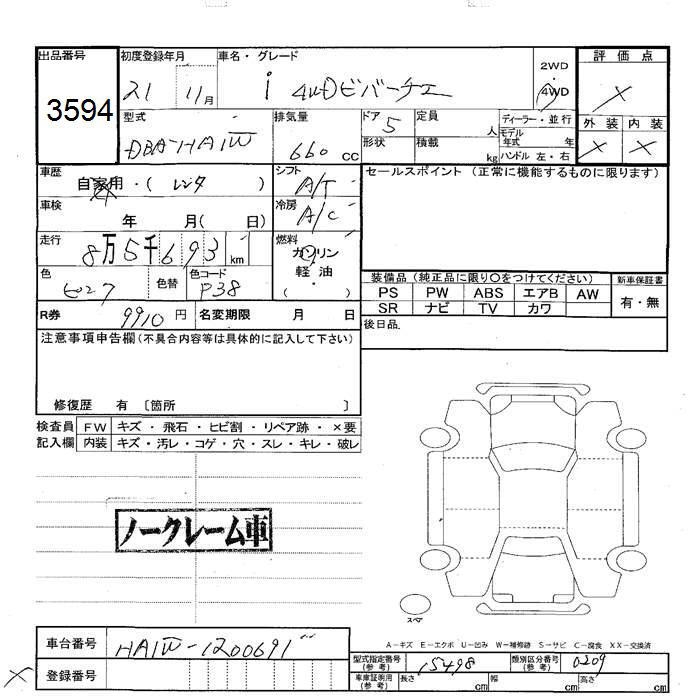 出品番号 初度登録年月 車名・グレード 2WD 評価点
3594 21 11月 i 4WDビバーチェ 4WD ×
型式 排気量 ドア 5 定員 人 ディーラー・並行 外装 内装
DBA-HA1W 660 CC 形状 積載 kg モデル年式 年 × ×
ハンドル 左・右
車歴 自家用・( レンタ ) シフト A/T セールスポイント (正常に機能するものに限ります)
車検 年 月( 日) 冷房 A/C
走行 8万5千693 km 燃料 ガソリン
軽油
( ・ )
色 色替 色コード P38 装備品 (純正品に限り○をつけてください) 新車保証書
PS PW ABS エアB AW 有・無
SR ナビ TV カワ
R券 9910円 名変期限 月 日 後日品
注意事項申告欄 (不具合内容等は具体的に記入して下さい)
修復歴 有 〔箇所 〕
検査員 FW キズ・飛石・ヒビ割・リペア跡・×要
記入欄 内装 キズ・汚レ・コゲ・穴・スレ・キレ・破レ
ノークレーム車
スペア
A-キズ E-エクボ U-凹み W-補修跡 S-サビ C-腐食 XX-交換済
車台番号 HA1W-1200691
型式指定番号 (参考) 15498 類別区分番号 (参考) 0209
登録番号
車庫証明用 (参考) 長さ cm 幅 cm 高さ cm